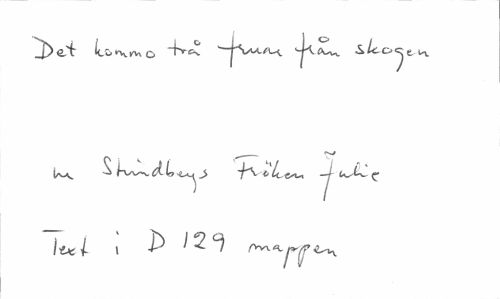 Det kommo två fruar från skogen
ur Strindbergs Fröken Julie
Text i D 129 mappen